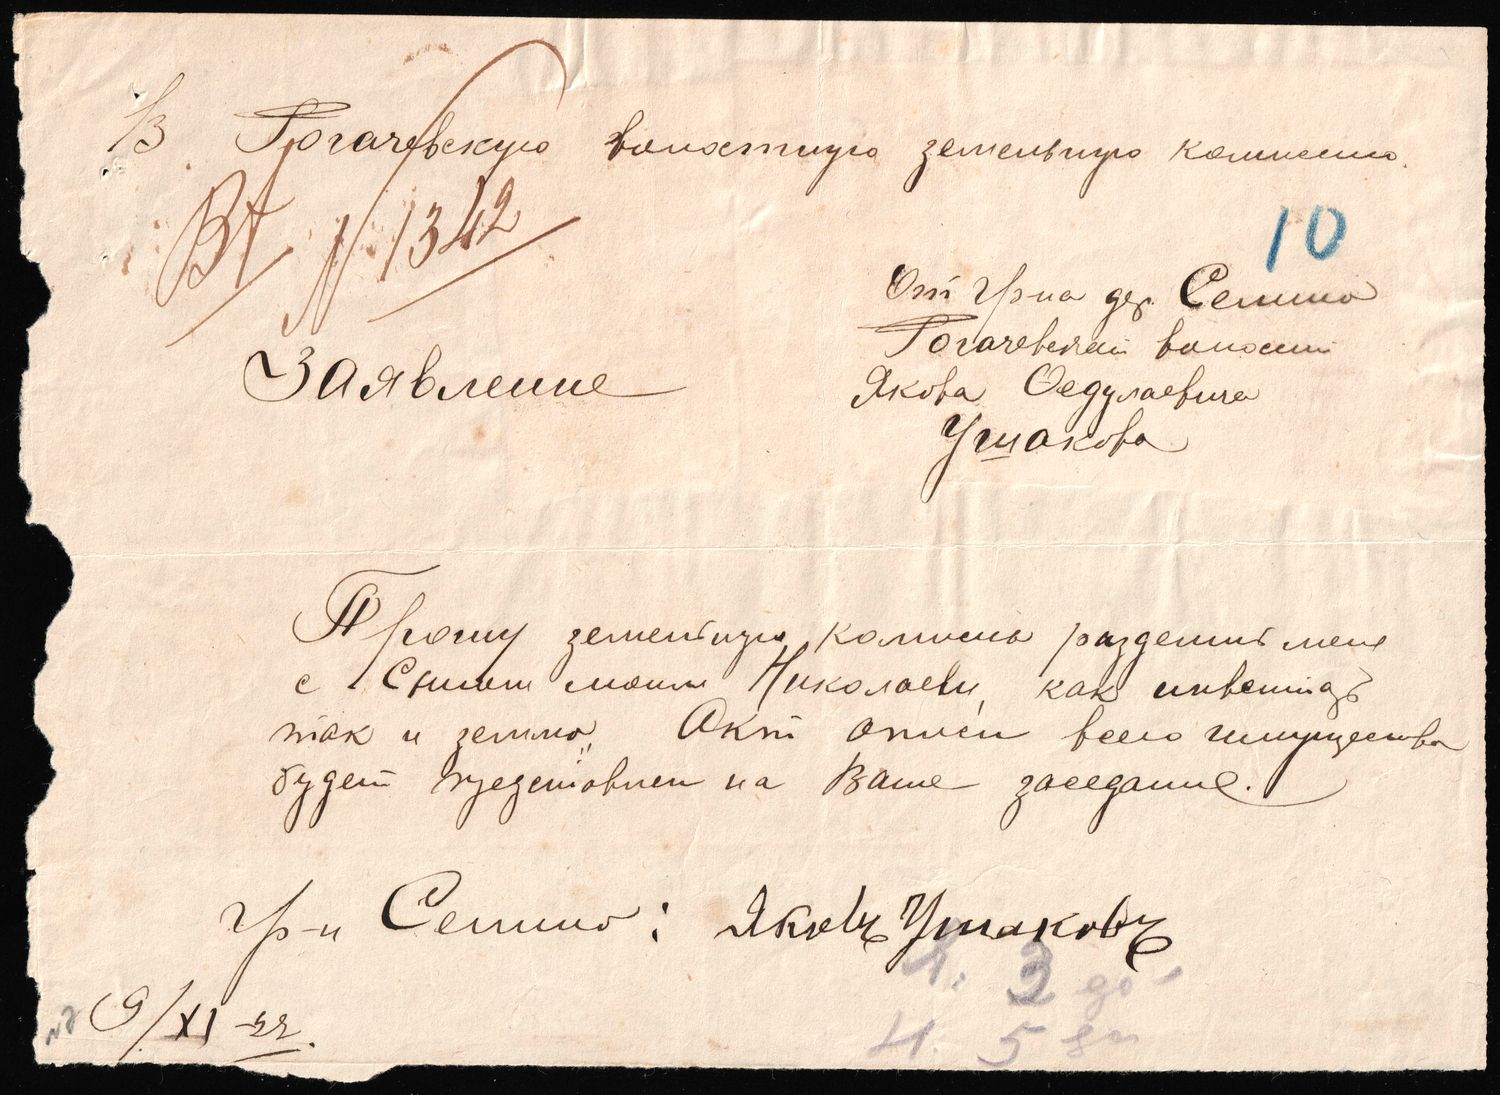 В Рогачевскую волостную земельную комиссию.
Вх № 1342
10
От гр-на дер. Семино
Рогачевской волости
Якова Федулаевича
Ушакова
Заявление
Прошу земельную комисью разделить меня
с Сыном моим Николаем, как инвентарь
так и землю. Акт описи всего имущества
будет представлен на Ваше заседание.
гр-н Семино: Яковъ Ушаковъ
9/XI-22.
3 до
5 за